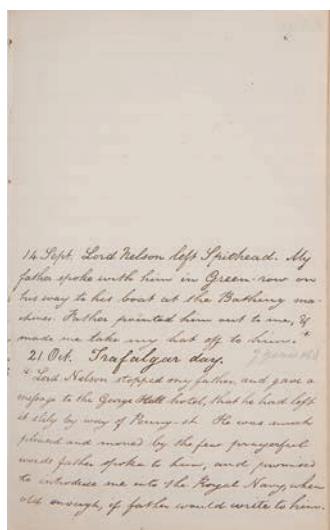 14 Sept. Lord Nelson left Spithead. My
father spoke with him in Green-row on
his way to his boat at the Bathing ma-
chines. Father pointed him out to me, &
made me take my hat off to him. *
21 Oct. Trafalgar day.
* Lord Nelson stopped my father, and gave a
message to the George Hotel, that he had left
it slily by way of Penny-st. He was much
pleased and moved by the few prayerful
words father spoke to him, and promised
to introduce me into the Royal Navy, when
old enough, if father would write to him.